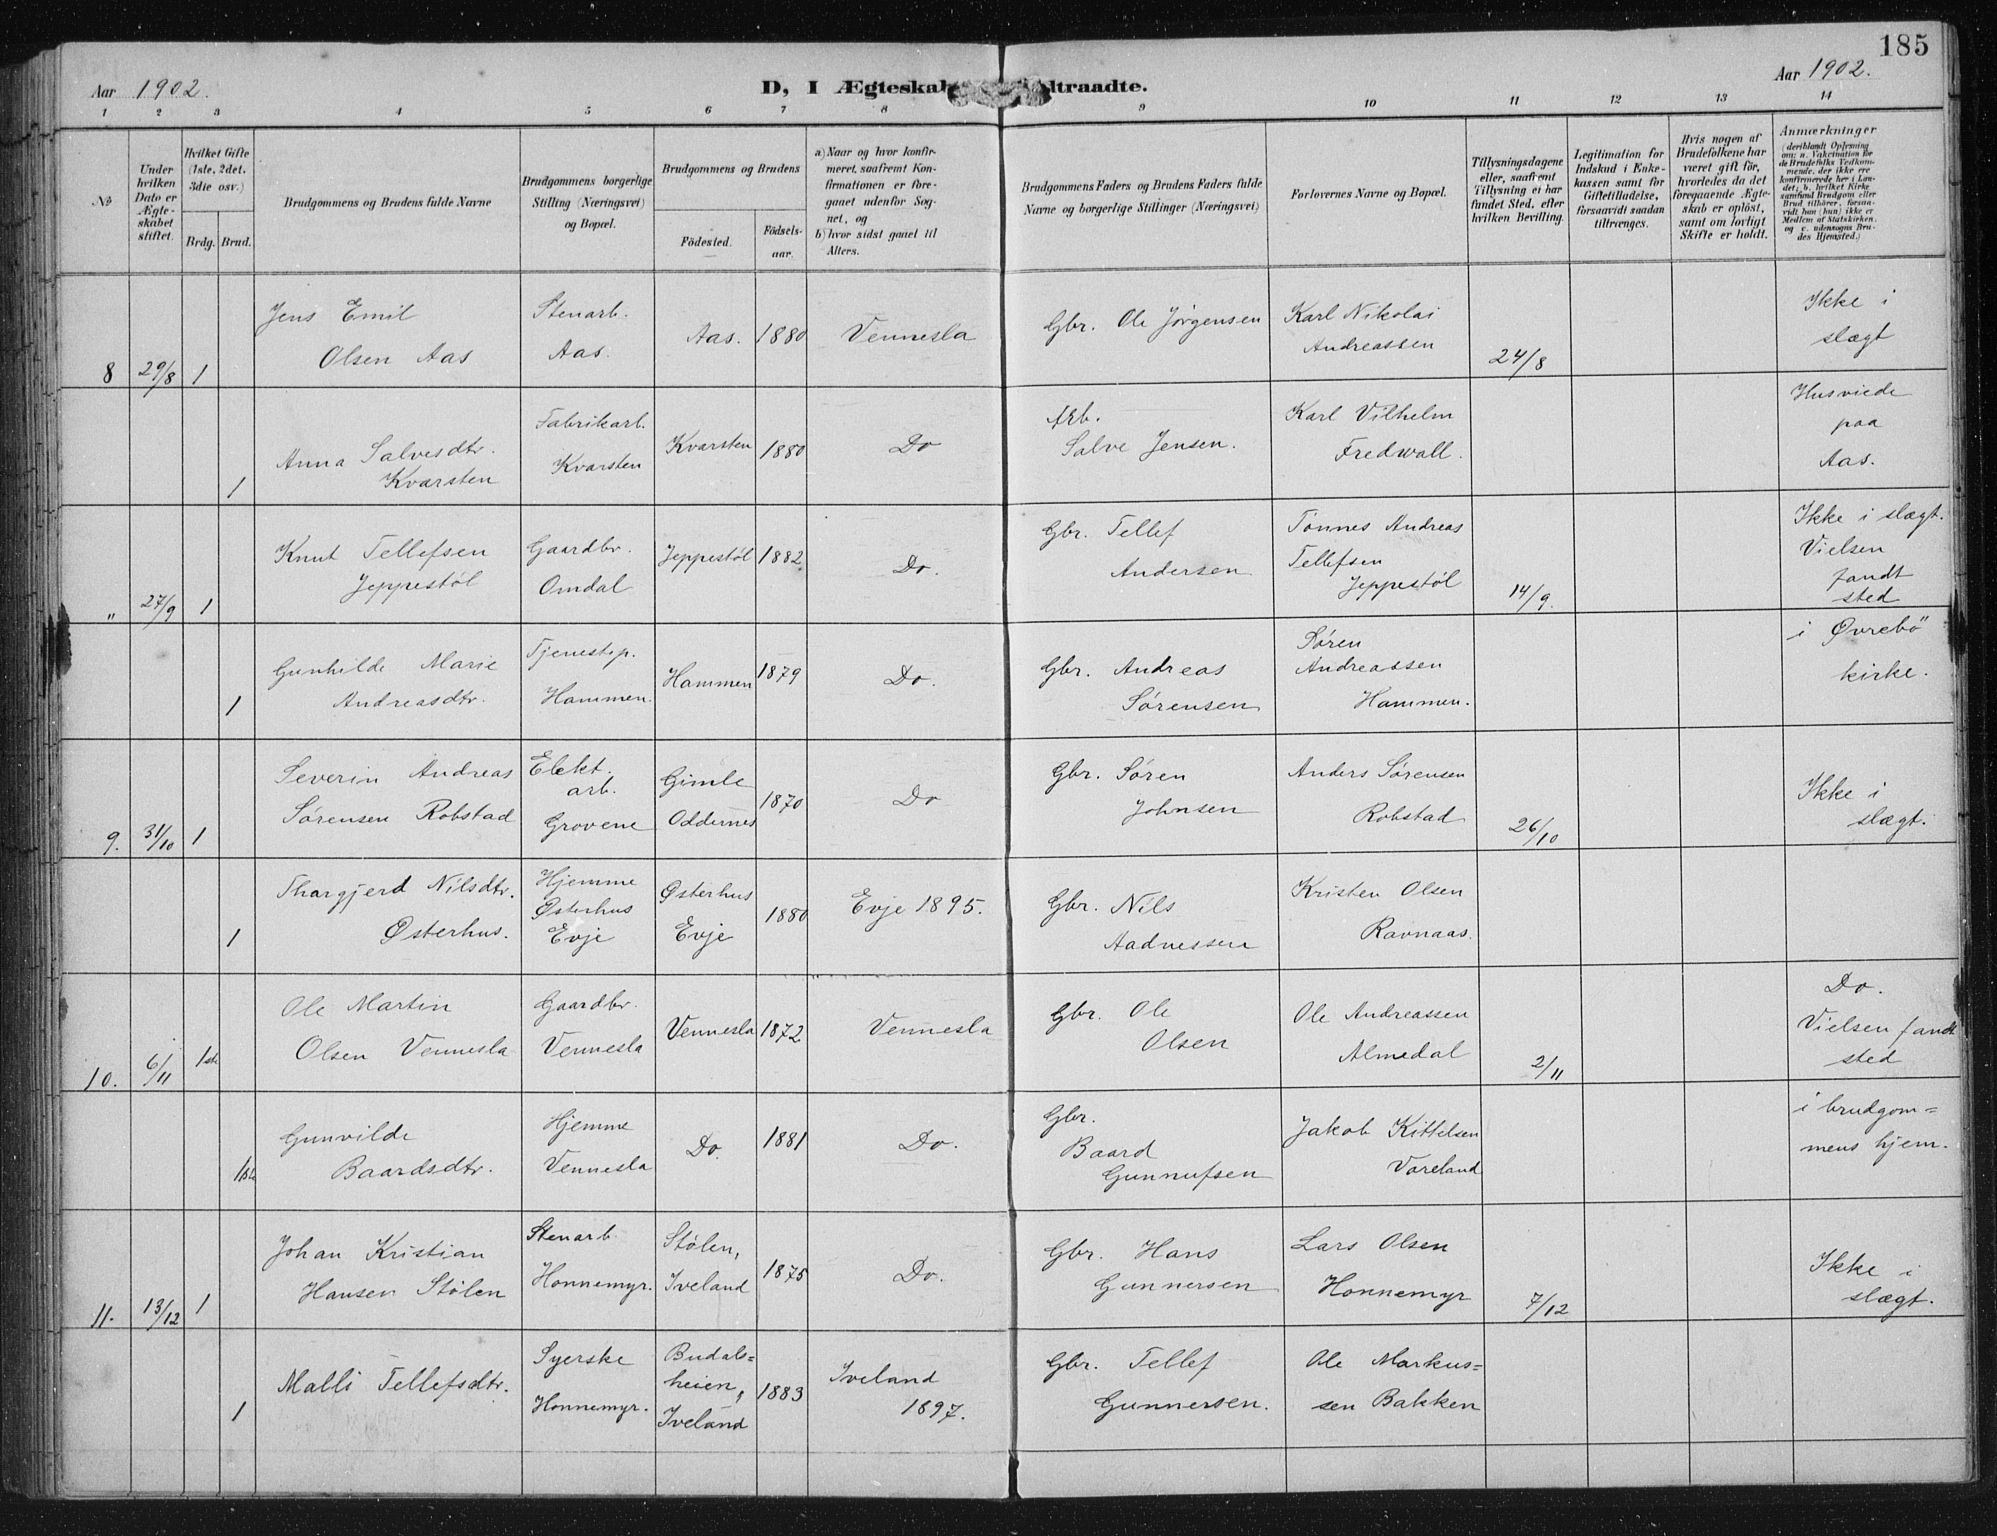 185
Aar 1902.
D, I Ægteskab Indtraadte.
Aar 1902.
1 2 3 4 5 6 7 8 9 10 11 12 13 14
№
Under hvilken Dato er Ægteskabet stiftet.
Hvilket Gifte (1ste, 2det, 3die osv.)
Brdg. Brud.
Brudgommens og Brudens fulde Navne
Brudgommens borgerlige Stilling (Næringsvei) og Bopæl.
Brudgommens og Brudens
Födested. Födselsaar.
a) Naar og hvor konfirmeret, saafremt Konfirmationen er foregaaet udenfor Sognet, og
b) hvor sidst gaaet til Alters.
Brudgommens Faders og Brudens Faders fulde Navne og borgerlige Stillinger (Næringsvei)
Forlovernes Navne og Bopæl.
Tillysningsdagene eller, saafremt Tillysning ei har fundet Sted, efter hvilken Bevilling.
Legitimation for Indskud i Enkekassen samt for Giftetilladelse, forsaavidt saadan tiltrænges.
Hvis nogen af Brudefolkene har været gift før, hvorledes da det foregaaende Ægteskab er opløst, samt om lovligt Skifte er holdt.
Anmærkninger
(deriblandt Oplysning om: a. Vakcination for de Brudefolks Vedkommende, der ikke ere konfirmerede her i Landet; b. hvilket Kirkesamfund Brudgom eller Brud tilhører, forsaavidt han (hun) ikke er Medlem af Statskirken, og c. udensogns Brudes Hjemsted.)
8 29/8 1 Jens Emil Olsen Aas Stenarb. Aas. Aas. 1880 Vennesla Gbr. Ole Jørgensen Karl Nikolai Andreassen 24/8 Ikke i slægt
1 Anna Salvesdtr. Kvarsten Fabrikarb. Kvarsten Kvarsten 1880 Do Arb. Salve Jensen. Karl Vilhelm Fredwall. Husviede paa Aas.
„ 27/9 1 Knut Tellefsen Jeppestøl Gaardbr. Omdal Jeppestøl 1882 Do. Gbr. Tellef Andersen Tønnes Andreas Tellefsen Jeppestøl 14/9. Ikke i slægt. Vielsen fandt sted
1 Gunhilde Marie Andreasdtr. Tjenestep. Hammen. Hammen 1879 Do. Gbr. Andreas Sørensen Søren Andreassen Hammen. i Øvrebö kirke.
9. 31/10 1 Severin Andreas Sørensen Robstad Elekt. arb. Grovene Gimle Oddernes 1870 Do Gbr. Søren Johnsen Anders Sørensen Robstad 26/10 Ikke i slægt.
1 Thargjerd Nilsdtr. Østerhus. Hjemme Østerhus Evje Østerhus Evje 1880 Evje 1895. Gbr. Nils Aadnessen Kristen Olsen Ravnaas.
10. 6/11 1ste Ole Martin Olsen Vennesla Gaardbr. Vennesla Vennesla 1872 Vennesla Gbr. Ole Olsen Ole Andreassen Almedal 2/11 Do. Vielsen fandt sted
1ste Gunvilde Baardsdtr. Hjemme Vennesla Do. 1881 Do. Gbr. Baard Gunnufsen Jakob Kittelsen Voreland i brudgom= mens hjem.
11. 13/12 1 Johan Kristian Hansen Stølen Stenarb Honnemyr. Stølen, Iveland 1875 Do. Gbr. Hans Gunnersen Lars Olsen Honnemyr 7/12 Ikke i slægt.
1 Malli Tellefsdtr. Syerske Honnemyr. Budals= heien, Iveland 1883 Iveland 1897. Gbr. Tellef Gunnersen. Ole Markus= sen Bakken